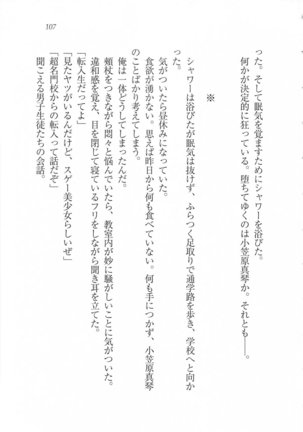 107
った。そして眠気を覚ますためにシャワーを浴びた。
何かが決定的に狂っている。堕ちてゆくのは小笠原真琴か。それとも――。
※
シャワーは浴びたが眠気は抜けず、ふらつく足取りで通学路を歩き、学校へと向か
った。
気がついたら昼休みになっていた。
食欲が湧かない。思えば昨日から何も食べていない。何も手につかず、小笠原真琴
のことばかり考えてしまう。
俺は一体どうしてしまったんだ。
頬杖をつきながら悶々と悩んでいたら、教室内が妙に騒がしいことに気がついた。
違和感を覚え、目を閉じて寝ているフリをしながら聞き耳を立てた。
「転入生だってよ」
「見たヤツがいるんだけど、スゲー美少女らしいぜ」
「超名門校からの転入って話だぞ」
聞こえる男子生徒たちの会話。